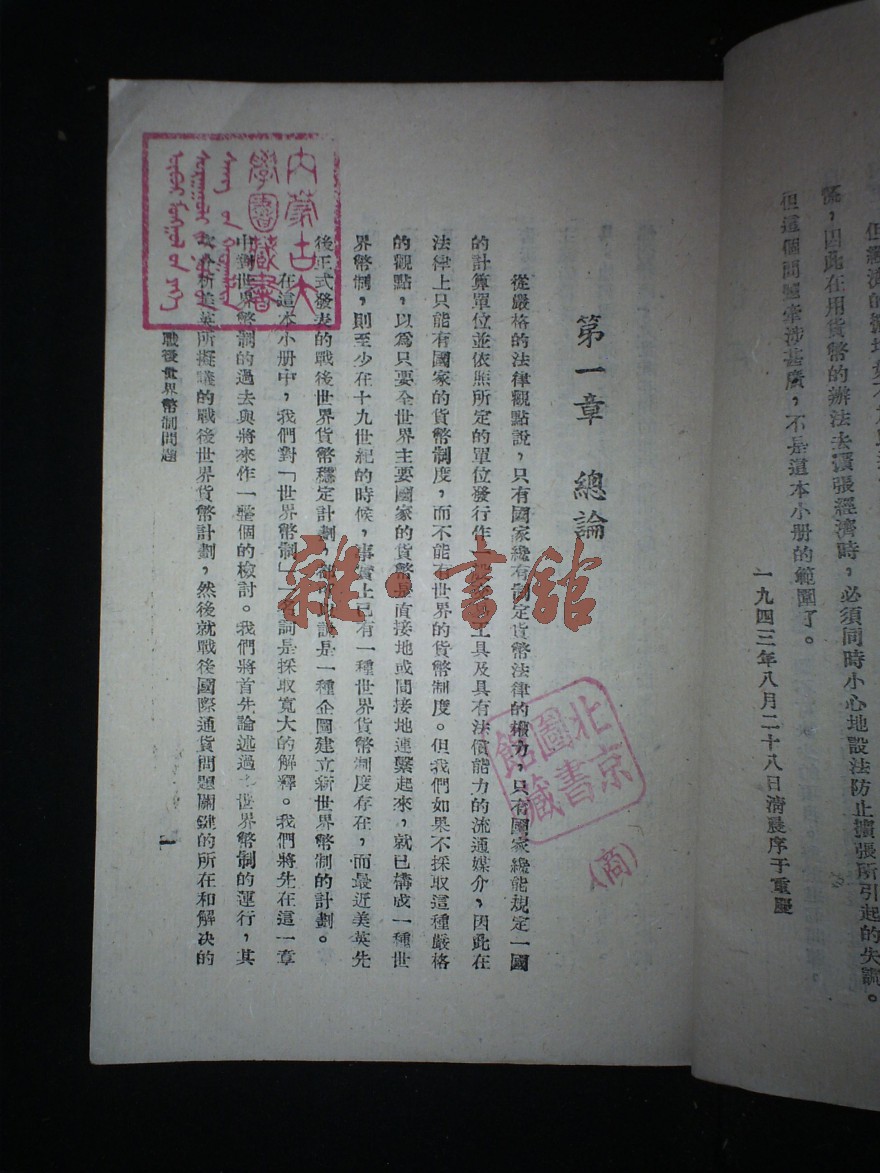 係，因此在用貨幣的辦法去擴張經濟時，必須同時小心地設法防止擴張所引起的失調。
但這個問題牽涉甚廣，不是這本小册的範圍了。
一九四三年八月二十八日清晨序于重慶
第一章　總論
從嚴格的法律觀點說，只有國家纔有制定貨幣法律的權力，只有國家纔能規定一國
的計算單位並依照所定的單位發行作工具及具有法償能力的流通媒介，因此在
法律上只能有國家的貨幣制度，而不能有世界的貨幣制度。但我們如果不採取這種嚴格
的觀點，以爲只要全世界主要國家的貨幣是直接地或間接地連繫起來，就已構成一種世
界幣制，則至少在十九世紀的時候，事實上已有一種世界貨幣制度存在，而最近美英先
後正式發表的戰後世界貨幣穩定計劃，說是一種企圖建立新世界幣制的計劃。
在這本小册中，我們對「世界幣制」一名詞是採取寬大的解釋。我們將先在這一章
中對世界幣制的過去與將來作一整個的檢討。我們將首先論述過去世界幣制的運行，其
次分析美英所擬議的戰後世界貨幣計劃，然後就戰後國際通貨問題關鍵的所在和解决的
戰後世界幣制問題
一
內蒙古大學圖書藏書
北京圖書館藏
（商）
雜·書館